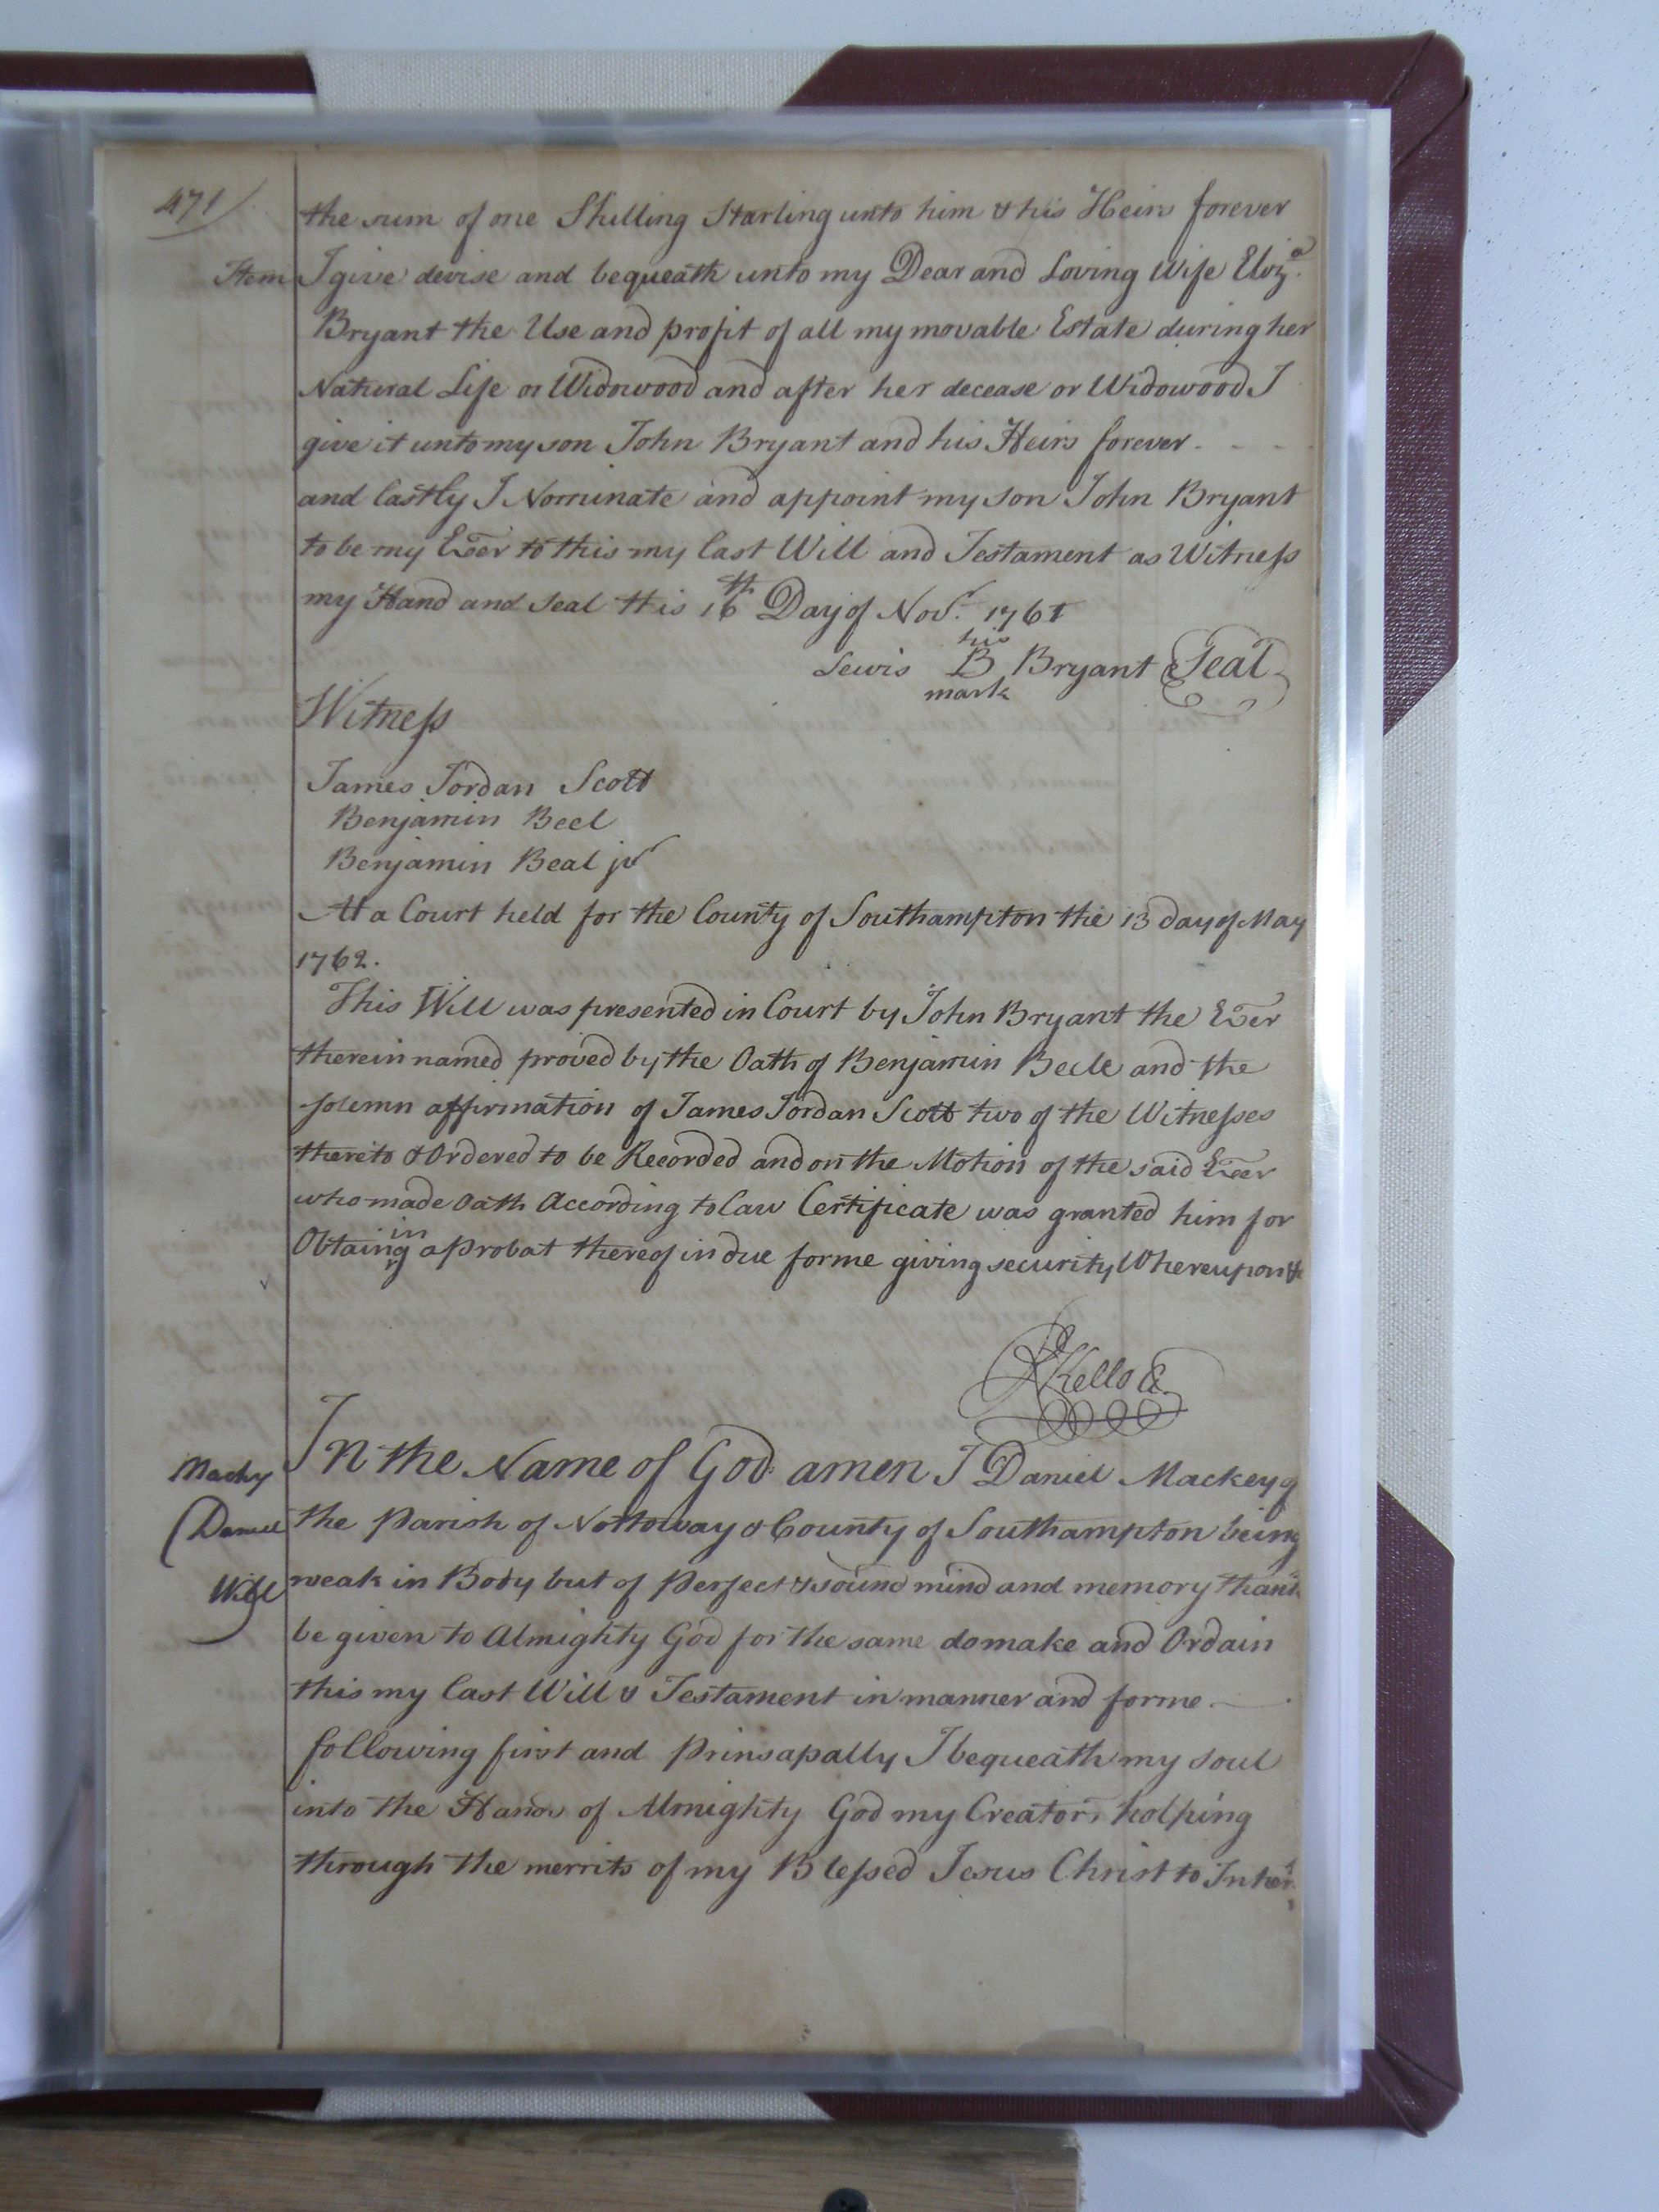 471/
the sum of one Shilling Starling unto him & his Heirs forever
Item I give devise and bequeath unto my Dear and Loving Wife Eliz.a
Bryant the Use and profit of all my movable Estate during her
Natural Life or Widowood and after her decease or Widowood I
give it unto my son John Bryant and his Heirs forever. - -
and lastly I Nominate and appoint my son John Bryant
to be my Exer to this my last Will and Testament as Witness
my Hand and Seal this 16th Day of Nov.r 1761
his
Lewis B Bryant Seal
mark
Witness
James Jordan Scott
Benjamin Beel
Benjamin Beal jr
At a Court held for the County of Southampton the 13 day of May
1762.
This Will was presented in Court by John Bryant the Exer
therein named proved by the Oath of Benjamin Beele and the
solemn affirmation of James Jordan Scott two of the Witnesses
thereto & Ordered to be Recorded and on the Motion of the said Exer
who made Oath According to law Certificate was granted him for
in
Obtaing a Probat thereof in due forme giving security Whereupon &
Kello
In the Name of God amen I Daniel Mackey of
Macky
Daniel
Will
the Parish of Nottoway & County of Southampton being
weak in Body but of Perfect & sound mind and memory thank
be given to Almighty God for the same do make and Ordain
this my last Will & Testament in manner and forme. -
following first and Prinsapally I bequeath my soul
into the Hands of Almighty God my Creator, holping
through the merrits of my Blessed Jesus Christ to Inher